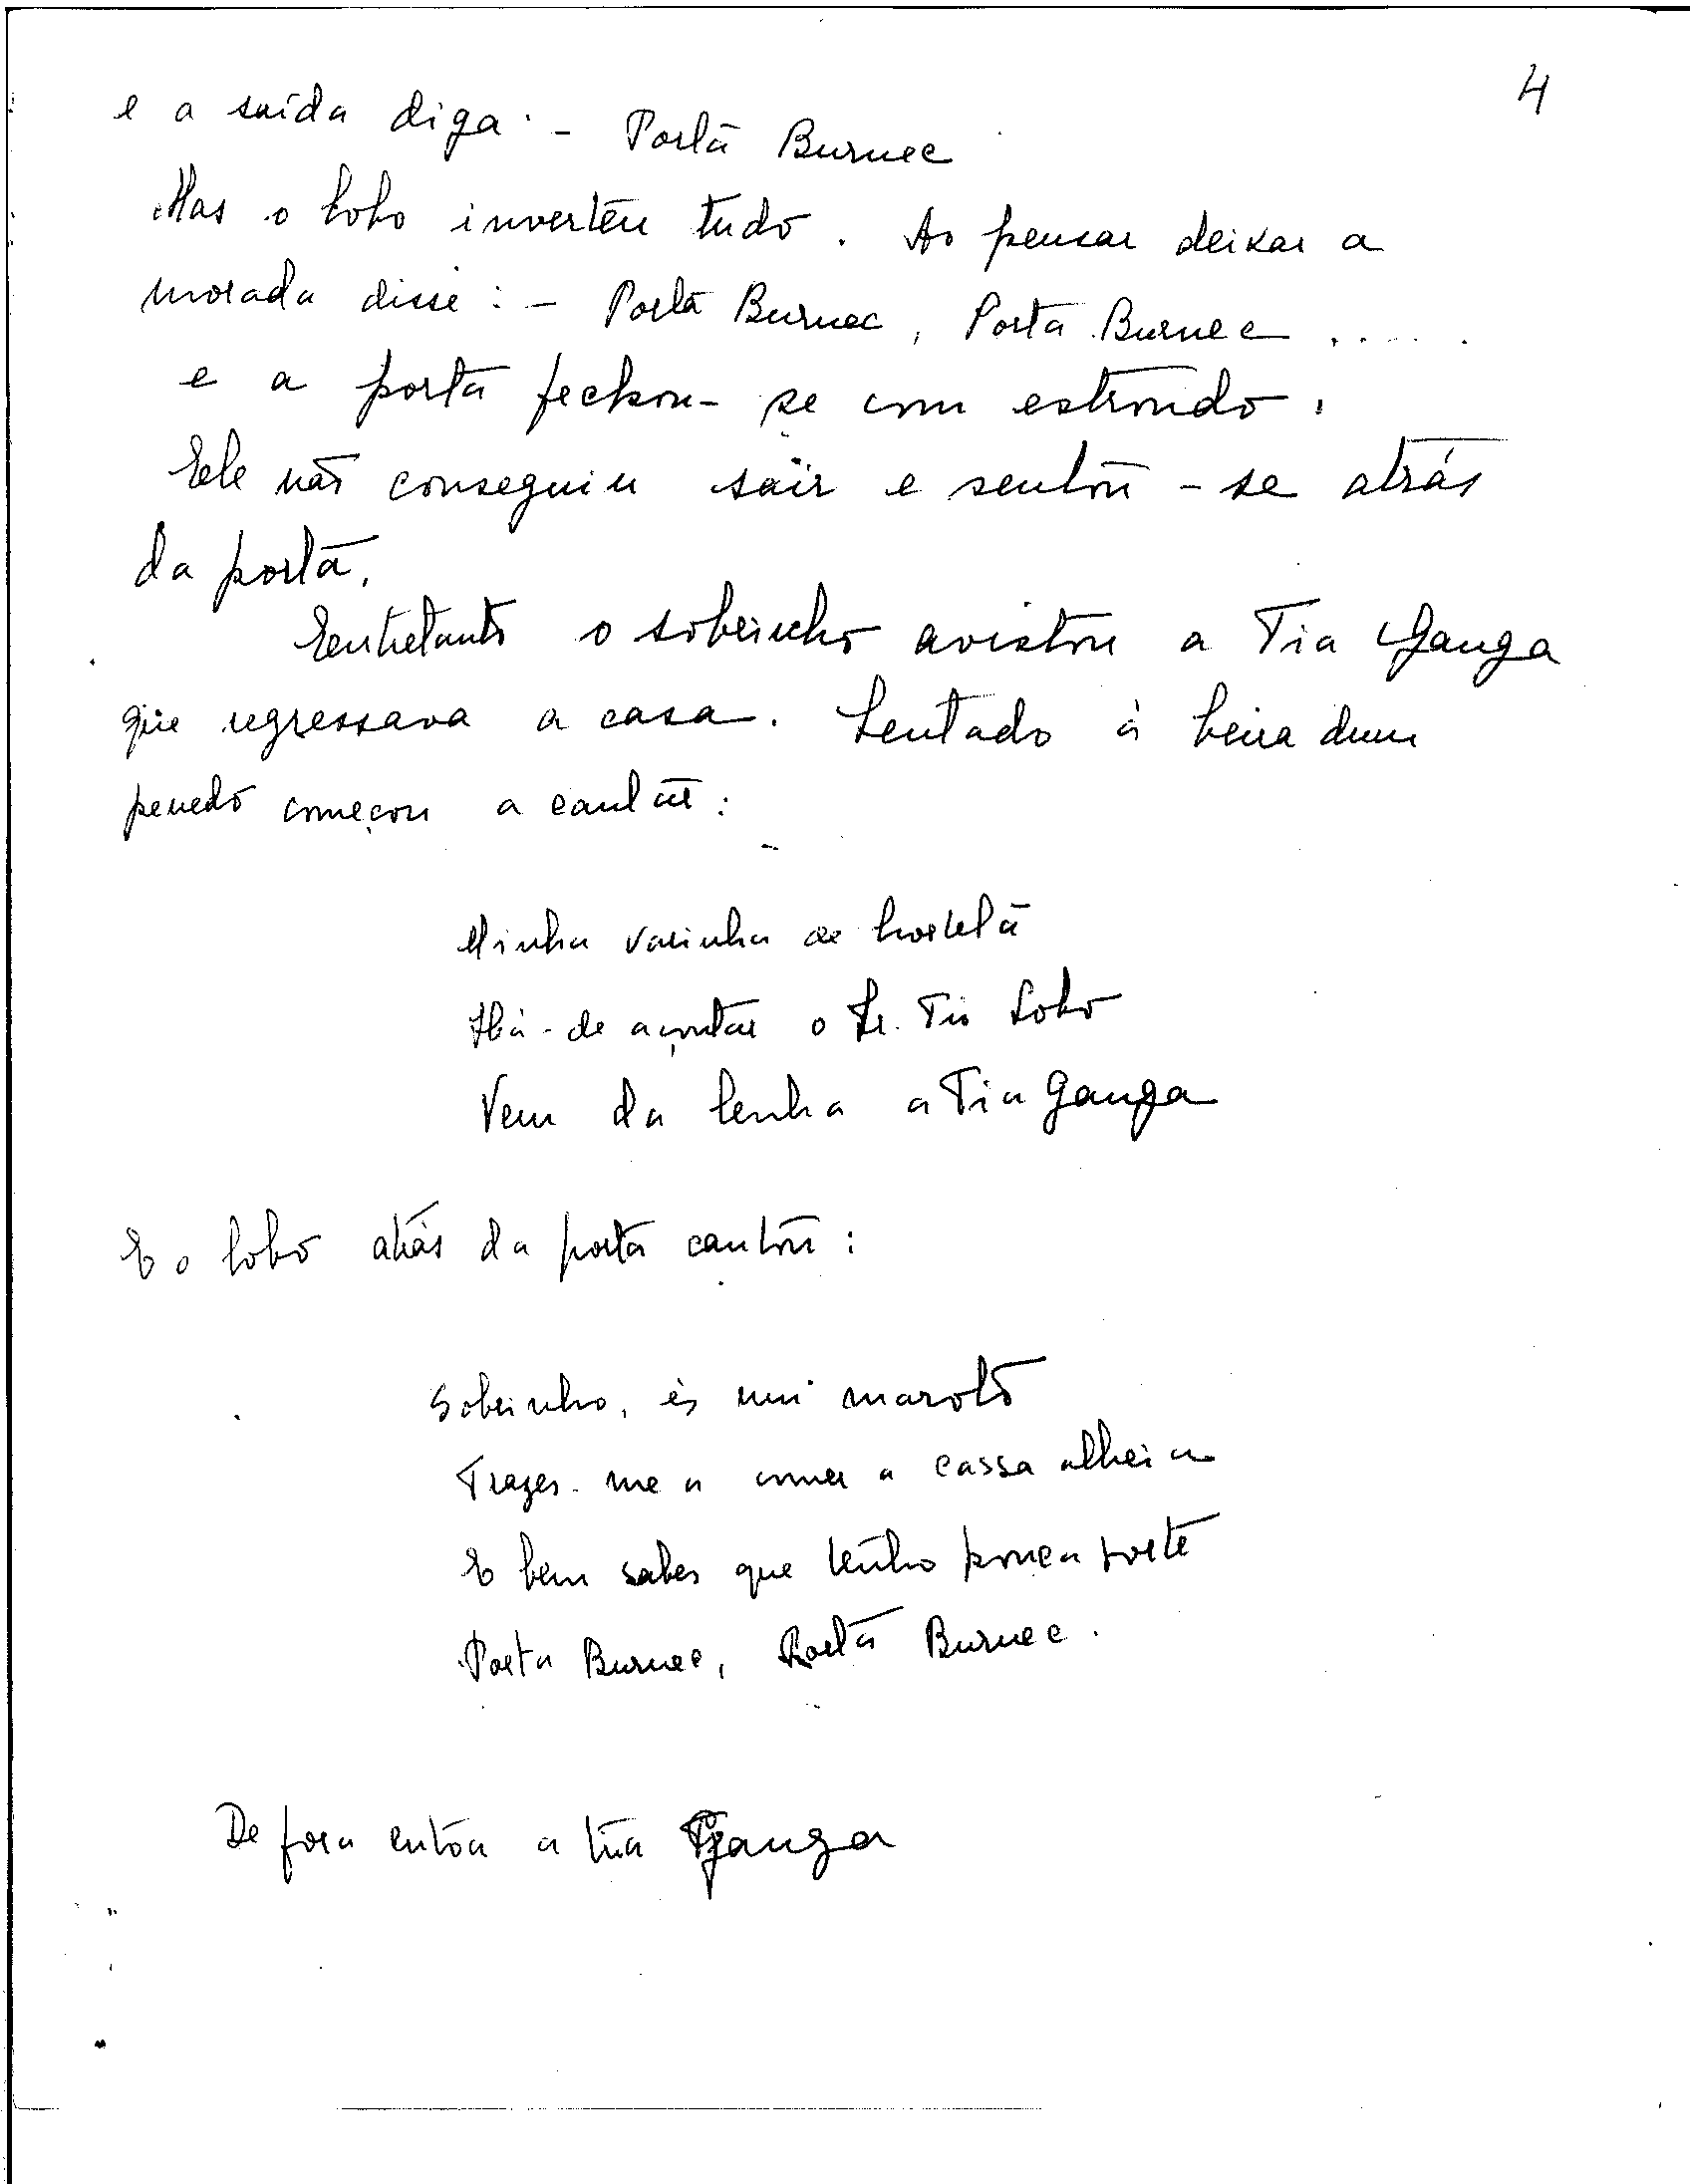 4
e a saída diga: - Porta Burnec
Mas o lobo inverteu tudo. Ao pensar deixar a
morada disse: - Porta Burnec, Porta Burnec .....
e a porta fechou-se com estrondo.
Ele não conseguiu sair e sentou-se atrás
da porta.
Entretanto o sobrinho avistou a Tia Ganga
que regressava a casa. Sentado à beira dum
penedo começou a cantar:
Minha varinha de hortelã
Há-de açoutar o Sr. Tio Lobo
Vem da lenha a Tia Ganga
E o lobo atrás da porta cantou:
Sobrinho, és um maroto
Trazes-me a comer a cassa alheia
E bem sabes que tenho pouca sorte
Porta Burnec, Porta Burnec.
De fora entoa a tia Ganga